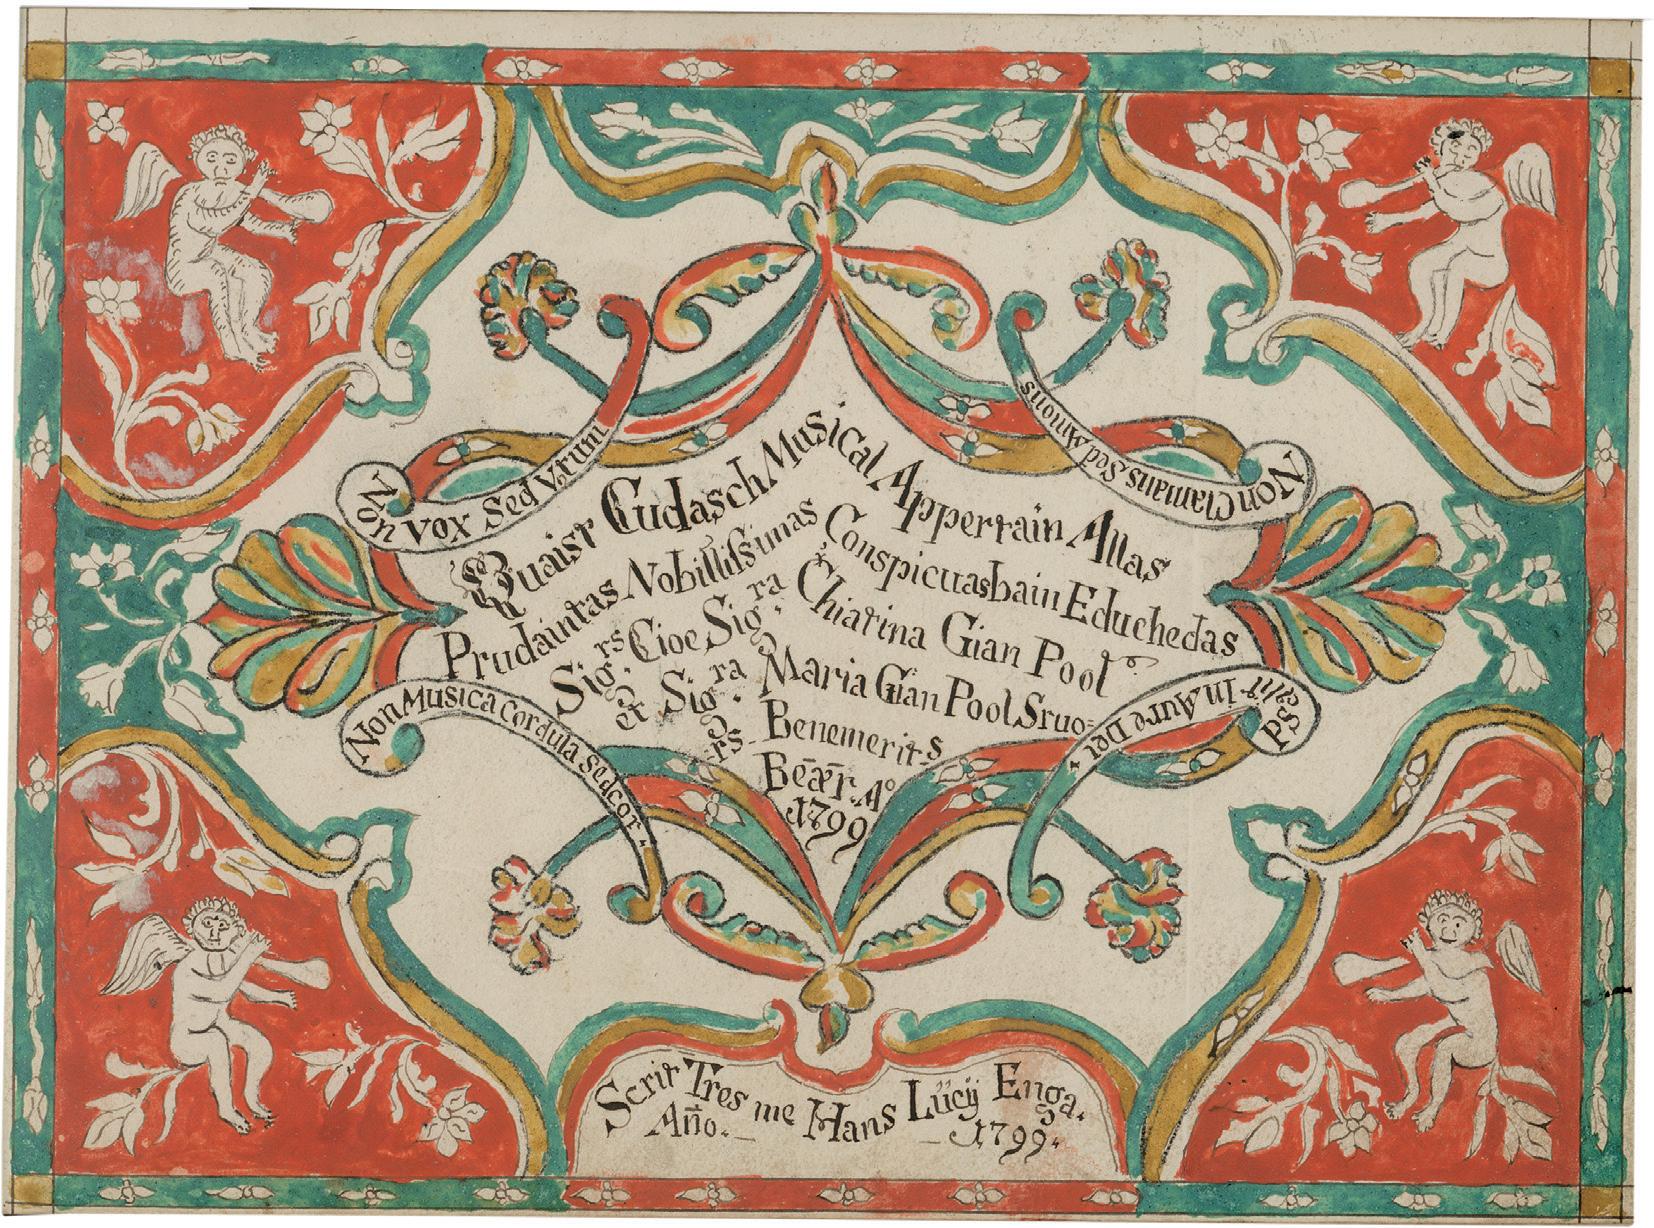 Non vox sed Votum
Non Clamans Sed Amons
Quaist Cudasch Musical Appertain Allas
Prudaintas Nobillissimas & Conspicuas bain Educhedas
Sig.rs Cioe Sig.ra Chiatina Gian Pool
et Sig.ra Maria Gian Pool Sruo=
rs_ Benemerits
Bēær. A°
1799
Non Musica cordula sed cor.
Psallit In Aure Dei.
Scrit Tres me Hans Lücÿ Enga.
Año._ _1799.